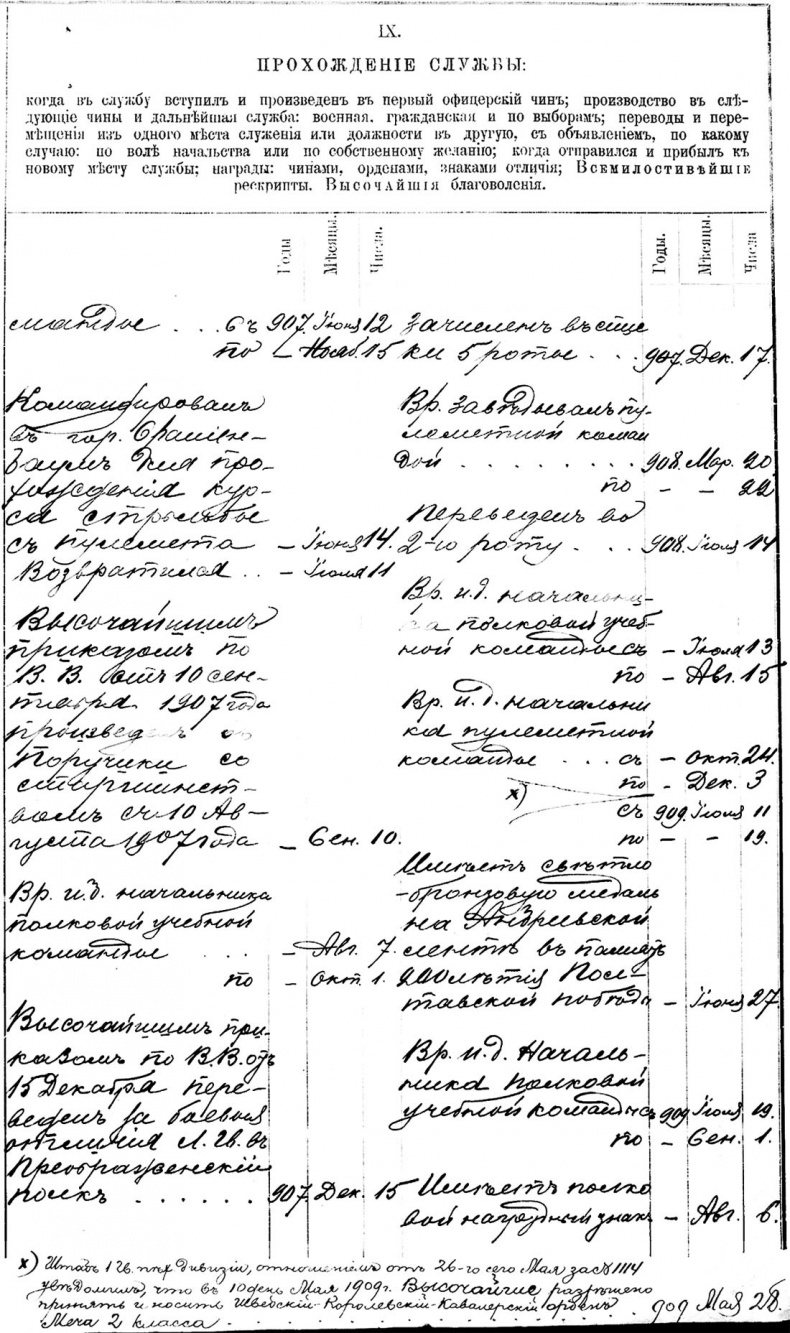 IX.
ПРОХОЖДЕНІЕ СЛУЖБЫ:
когда въ службу вступилъ и произведенъ въ первый офицерскій чинъ; производство въ слѣ-
дующіе чины и дальнѣйшая служба: военная, гражданская и по выборамъ; переводы и пере-
мѣщенія изъ одного мѣста служенія или должности въ другую, съ объявленіемъ, по какому
случаю: по волѣ начальства или по собственному желанію; когда отправился и прибылъ къ
новому мѣсту службы; награды: чинами, орденами, знаками отличія; Всемилостивѣйшіе
рескрипты. Высочайшія благоволенія.
Годы Мѣсяцы. Числа.
мандѣ . . . съ 907. Іюня 12
по – Нояб. 15
Командированъ
въ гор. Ораніен-
баумъ для про-
хожденія кур-
са стрѣльбы
съ пулемета – Іюня 14.
Возвратился . . – Іюля 11
Высочайшимъ
приказомъ по
В. В. отъ 10 сен-
тября 1907 года
произведенъ въ
Поручики со
старшинст-
вомъ съ 10 Ав-
густа 1907 года – Сен. 10.
Вр. и.д. начальника
полковой учебной
команды . . . – Авг. 7
по – Окт. 1.
Высочайшимъ при-
казомъ по В.В. отъ
15 Декабря пере-
веденъ за боевыя
отличія Л. Гв. въ
Преображенскій
полкъ . . . . . . 907 Дек. 15
Годы. Мѣсяцы. Числа
Зачисленъ въ спис-
ки 5 роты . . . 907. Дек. 17.
Вр. завѣдывалъ пу-
леметной коман
дой . . . . . . . 908. Мар. 20
по – – 22
Переведенъ во
2-ю роту . . . 908. Іюля 14
Вр. и.д. начальни-
ка полковой учеб-
ной команды съ – Іюля 13
по – Авг. 15
Вр. и.д. начальни
ка пулеметной
команды . . . съ – Окт. 24.
по – Дек. 3
х)
съ 909. Іюля 11
по – – 19.
Имѣетъ свѣтло
-бронзовую медаль
на Андреевской
лентѣ въ память
200лѣтія Пол-
тавской побѣды – Іюня 27.
Вр. и.д. Началь-
ника полковой
учебной команды съ 909 Іюля 19.
по – Сен. 1.
Имѣетъ полко
вой нагрудный знакъ – Авг. 6.
х) Штабъ 1 Гв. пѣх. дивизіи, отношеніемъ отъ 26-го сего Мая за № 1114
увѣдомилъ, что въ 10 день Мая 1909 г. Высочайше разрѣшено
принять и носить Шведскій-Королевскій-Кавалерскій орденъ
Меча 2 класса . . . . . . . . . . . . . 909 Мая 28.